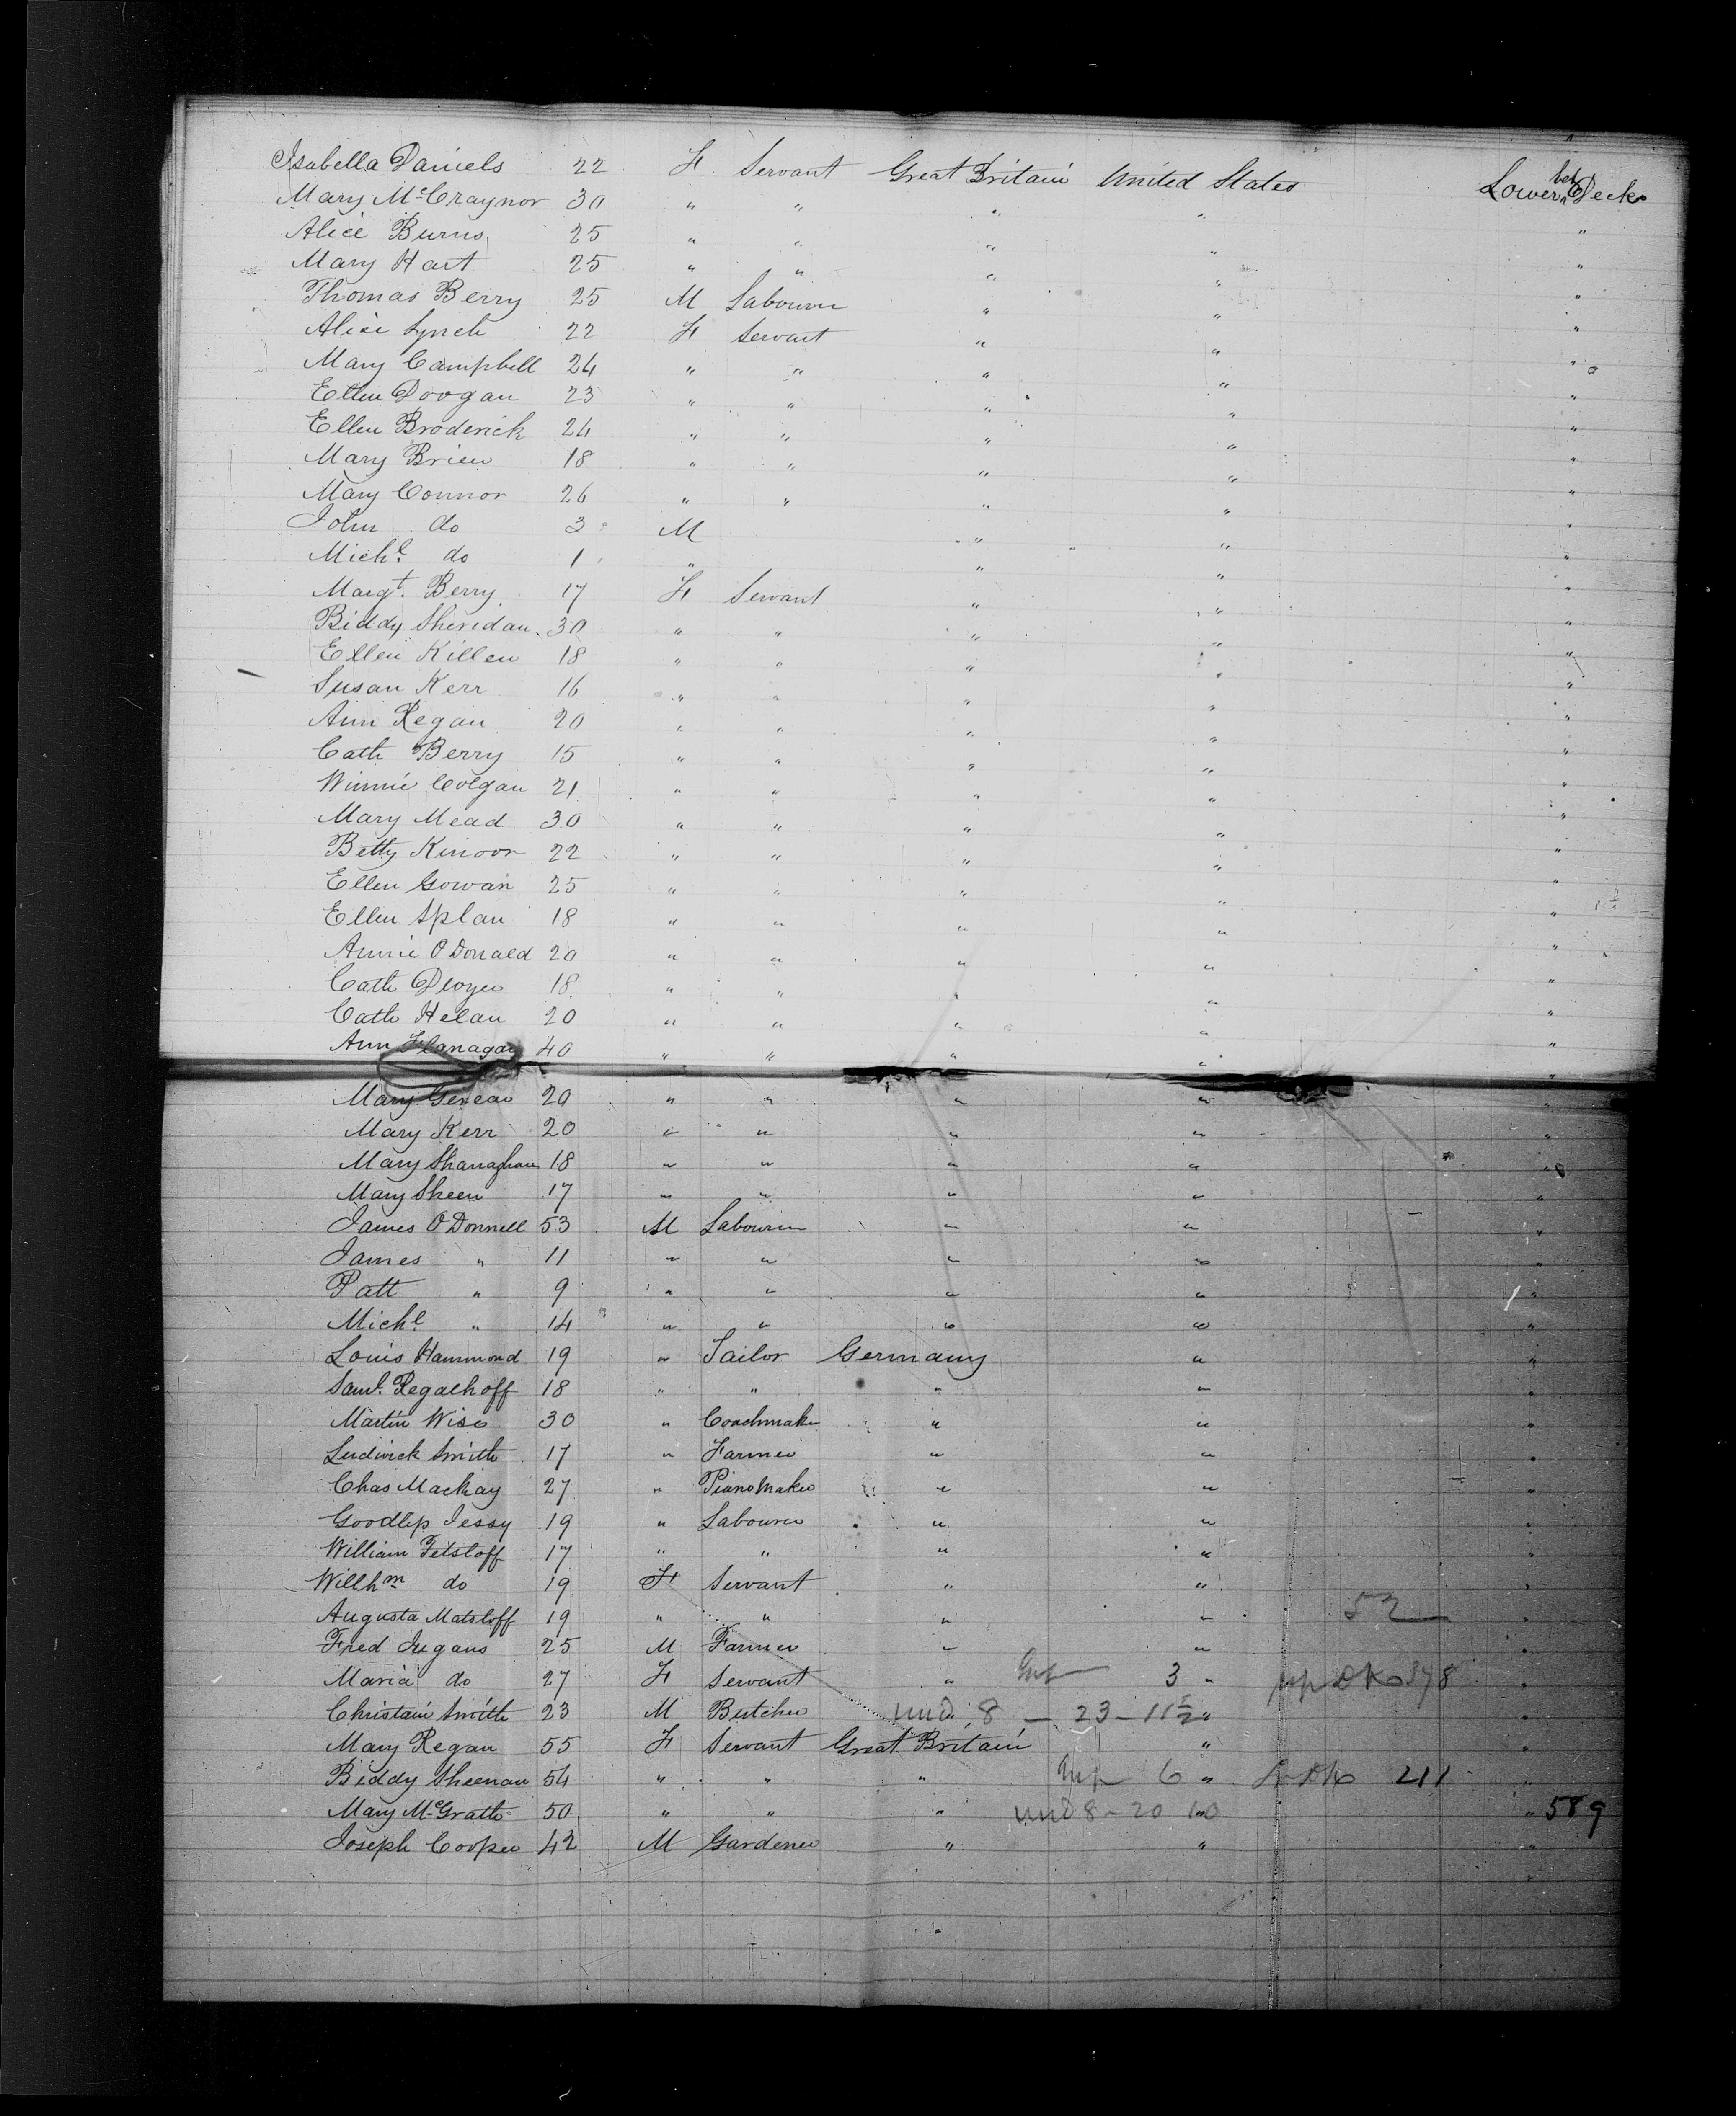 Isabella Daniels 22 F. Servant Great Britain United States Lower bet Decks
Mary McCraynor 30 " " " " "
Alice Burns 25 " " " " "
Mary Hart 25 " " " " "
Thomas Berry 25 M Labourer " " "
Alice Lynch 22 F Servant " " "
Mary Campbell 24 " " " " "
Ellen Doogan 23 " " " " "
Ellen Broderick 24 " " " " "
Mary Brien 18 " " " " "
Mary Connor 26 " " " " "
John do 3 M " " "
Michl. do 1 " " " "
Margt. Berry 17 F Servant " " "
Biddy Sheridan 30 " " " " "
Ellen Killen 18 " " " " "
Susan Kerr 16 " " " " "
Ann Regan 20 " " " " "
Cath Berry 15 " " " " "
Winnie Colgan 21 " " " " "
Mary Mead 30 " " " " "
Betty Kinoor 22 " " " " "
Ellen Gowan 25 " " " " "
Ellen Splan 18 " " " " "
Annie O'Donald 20 " " " " "
Cath Dwyer 18 " " " " "
Cath Helan 20 " " " " "
Ann Flanagan 40 " " " " "
Mary 20 " " " " "
Mary Kerr 20 " " " " "
Mary Shanaghan 18 " " " " "
Mary Sheen 17 " " " " "
James O'Donnell 53 M Labourer " " "
James " 11 " " " " "
Patt " 9 " " " " "
Michl. " 14 " " " " "
Louis Hammond 19 " Tailor Germany " "
Saml. Regalhoff 18 " " " " "
Martin Wise 30 " Coachmaker " " "
Ludwick Smith 17 " Farmer " " "
Chas Mackay 27 " Piano Maker " " "
Goodlip Jessy 19 " Labourer " " "
William Fetsloff 17 " " " " "
Willhm do 19 F Servant " " "
Augusta Matsloff 19 " " " " 52 "
Fred Jugans 25 M Farmer " " "
Maria do 27 F Servant " 3 " up Dk 378 "
Christain Smith 23 M Butcher " und 8 - 23 - 11 "
Mary Regan 55 F Servant Great Britain " "
Biddy Sheenan 54 " " " 6 " Dk 211 "
Mary McGrath 50 " " " und 8 - 20 10 " " 589
Joseph Cooper 42 M Gardener " " "